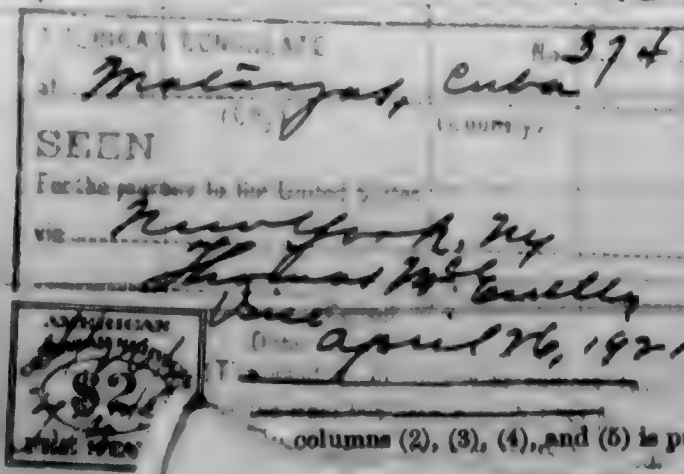 AMERICAN CONSULATE No. 374
at Matanzas, Cuba
(City) (Country)
SEEN
For the journey to the United States
via New York, NY
Thomas
Vice
Date April 26, 1921
AMERICAN
$2
columns (2), (3), (4), and (5) is p